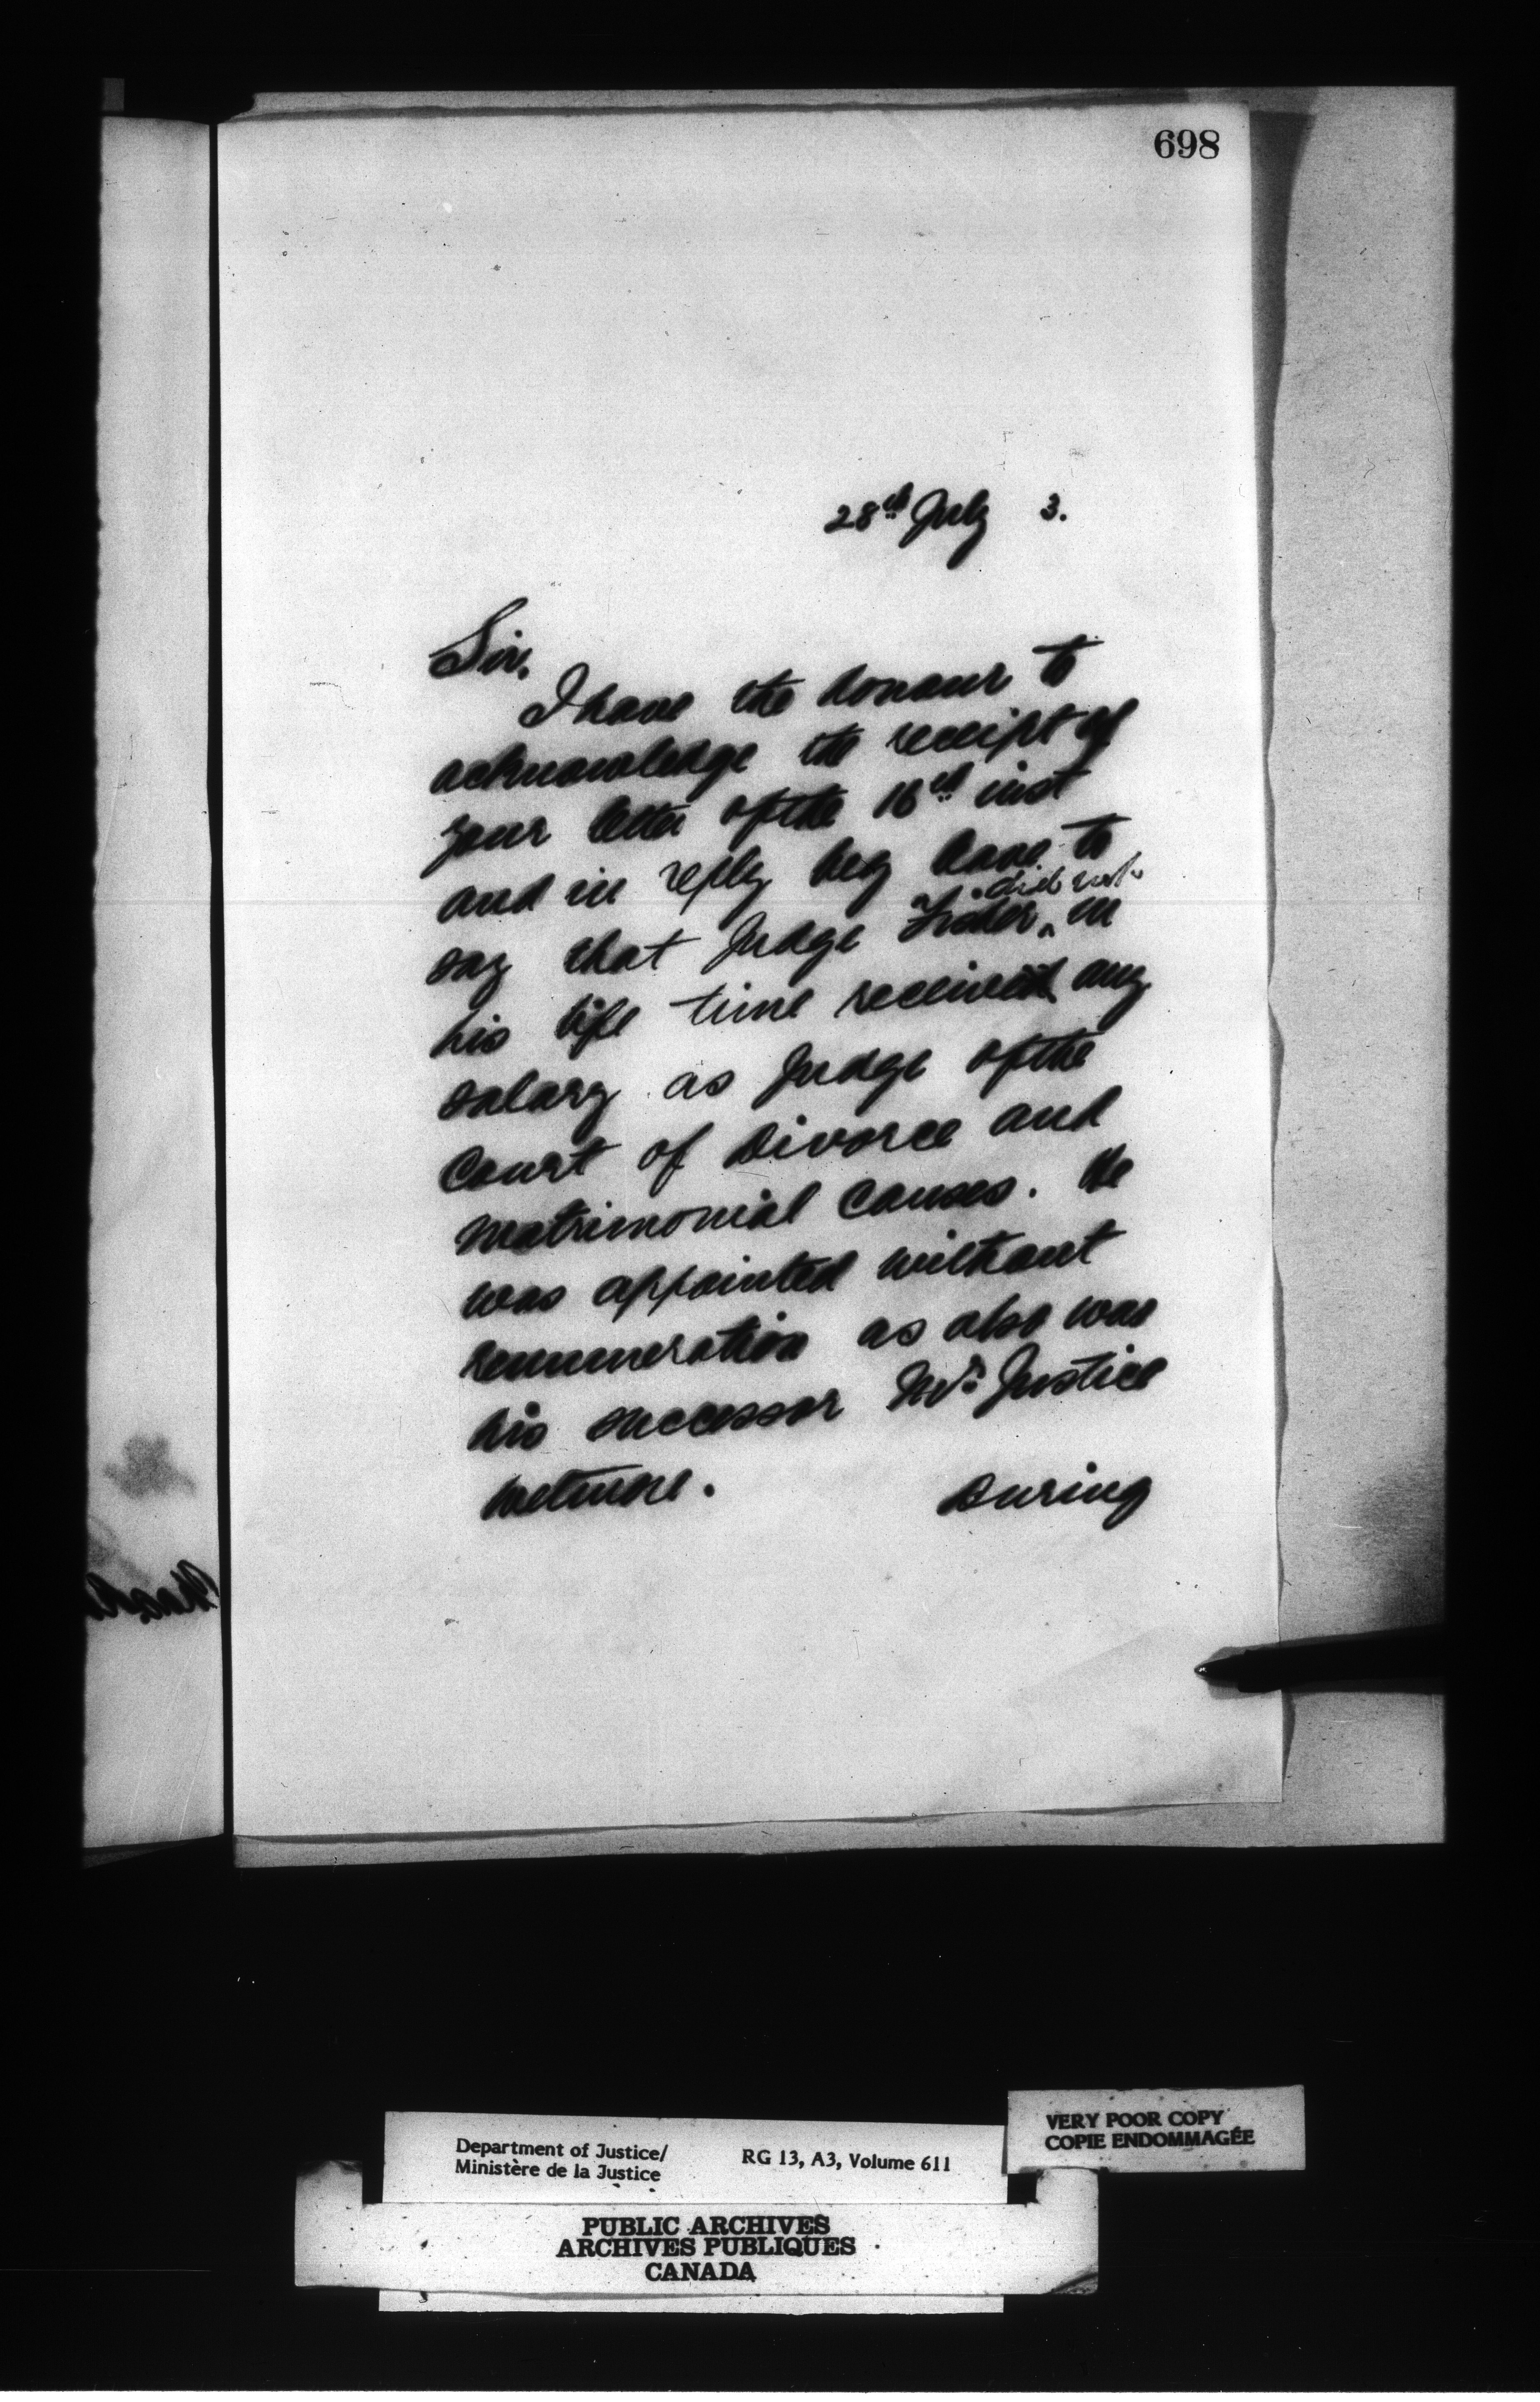 698
28th July 3.
Sir,
I have the honour to
acknowledge the receipt of
your letter of the 16th inst
and in reply beg leave to
say that Judge Fisher did not in
his life time received any
salary as Judge of the
Court of Divorce and
Matrimonial Causes. He
was appointed without
remuneration as also was
his successor Mr. Justice
Wetmore. During
Department of Justice/
Ministère de la Justice
RG 13, A3, Volume 611
VERY POOR COPY
COPIE ENDOMMAGÉE
PUBLIC ARCHIVES
ARCHIVES PUBLIQUES
CANADA